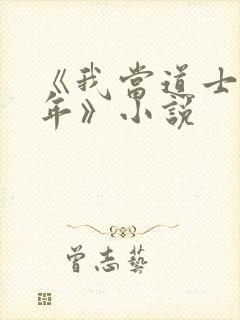 《我當道士
年》小說
曾志藝